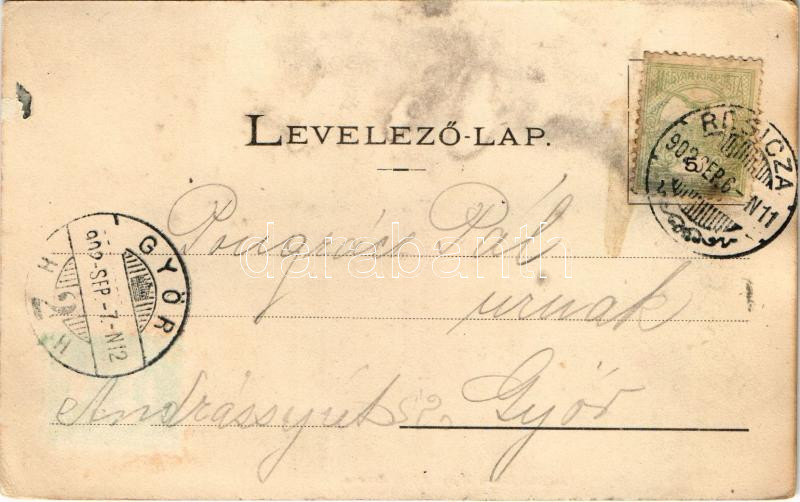 LEVELEZŐ-LAP.
MAGYAR KIR. POSTA
5
RESICZA
902 SEP. 6 -N11
GYŐR
902 -SEP.-7.-N12
H 2 H
Pongrác Pál
urnak
Andrássy út 52. Győr
darabanth